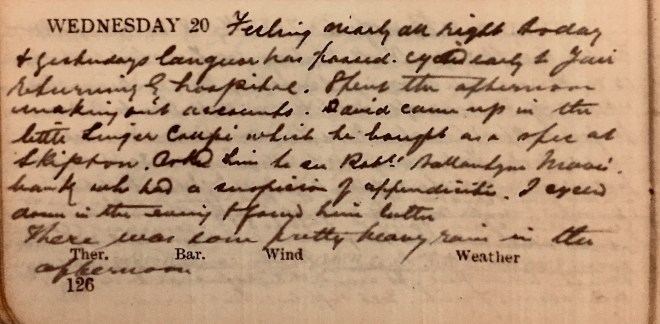 WEDNESDAY 20 Feeling nearly all right today
& yesterdays languor has passed. cycled early to Yair
returning by hospital. Spent the afternoon
making out accounts. David came up in the
little Singer Coupé which he bought as a spec at
Skipton. Asked him to see Robt. Ballantyne
bank who had a suspicion of appendicitis. I cycled
down in the evening & found him better
There was some pretty heavy rain in the
Ther. Bar. Wind Weather
afternoon
126